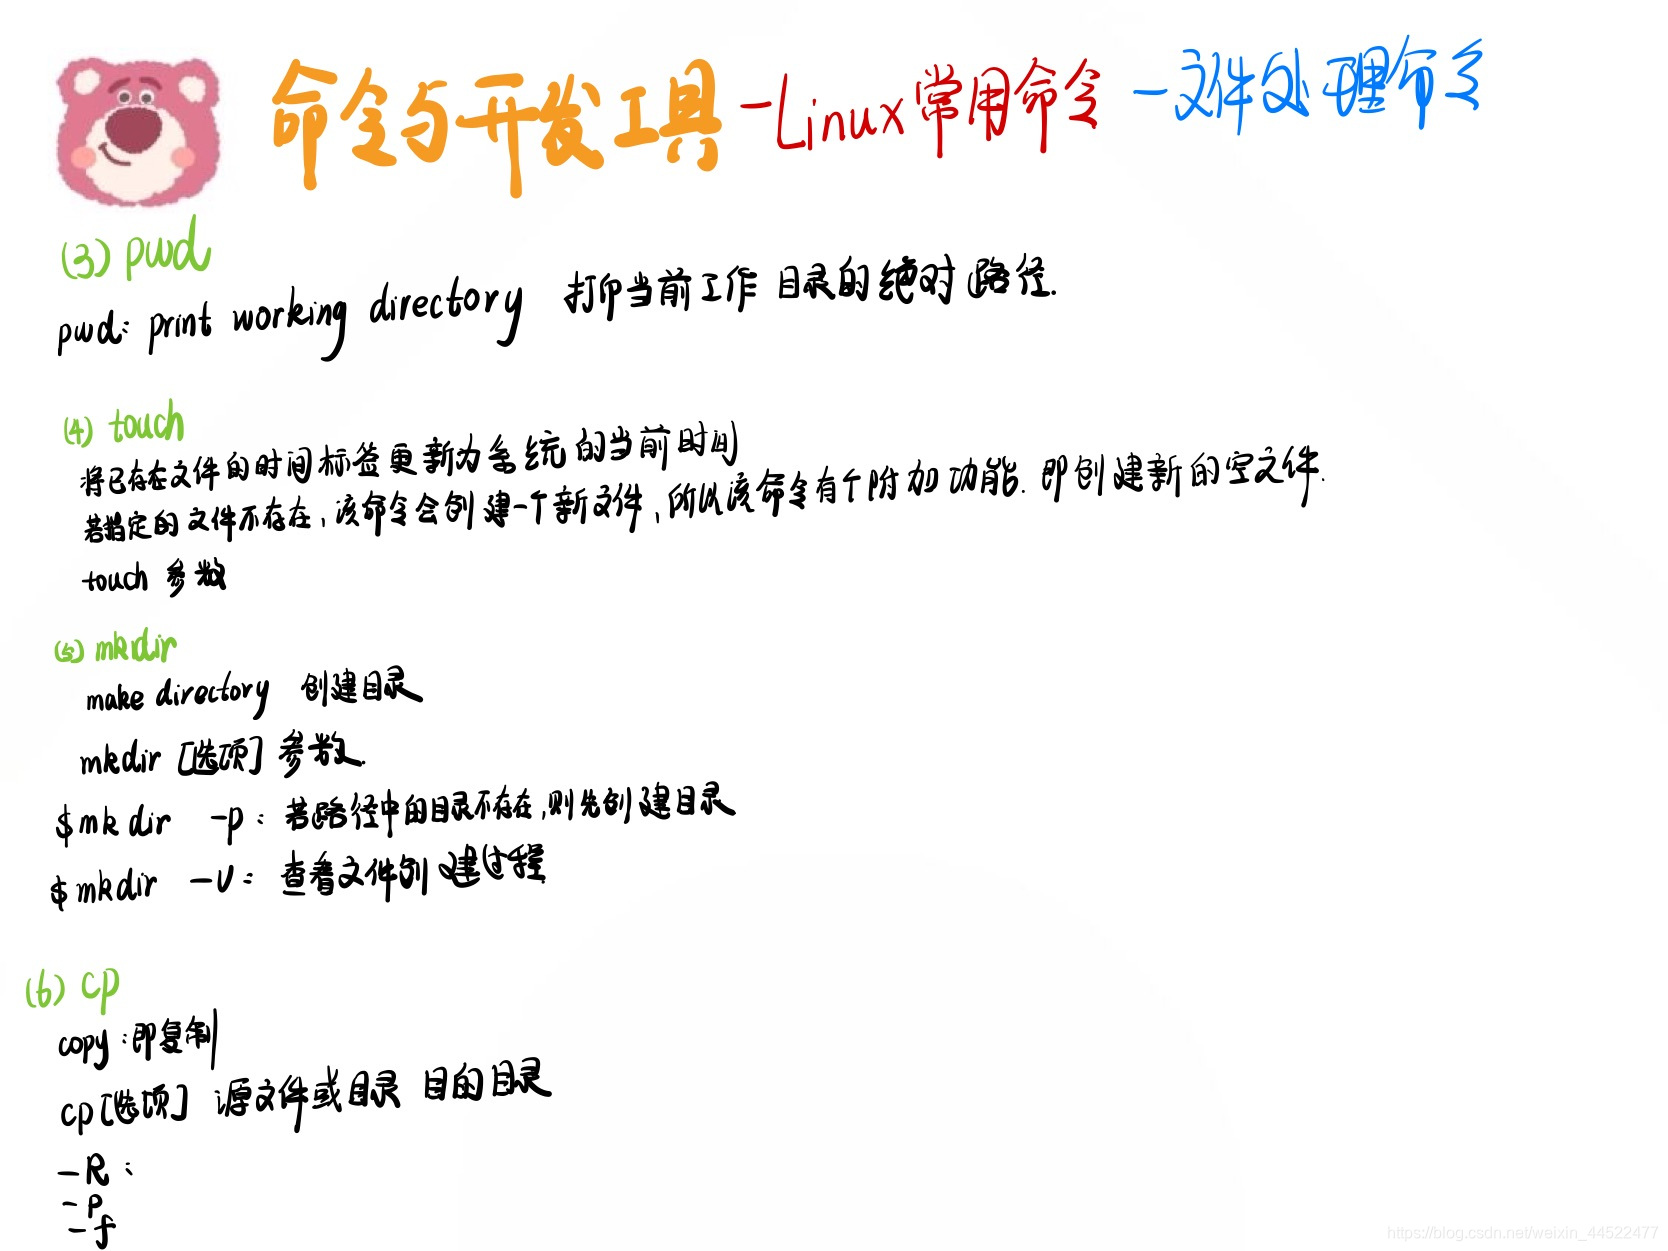 命令与开发工具 -Linux常用命令 -文件处理命令
(3) pwd
pwd: print working directory 打印当前工作目录的绝对路径.
(4) touch
将已存在文件的时间标签更新为系统的当前时间
若指定的文件不存在,该命令会创建一个新文件,所以该命令有个附加功能.即创建新的空文件.
touch 参数
(5) mkdir
make directory 创建目录
mkdir [选项] 参数.
$mkdir -p: 若路径中的目录不存在,则先创建目录
$mkdir -v: 查看文件创建过程
(6) cp
copy:即复制
cp[选项] 源文件或目录 目的目录
-R:
-p
-f
https://blog.csdn.net/weixin_44522477